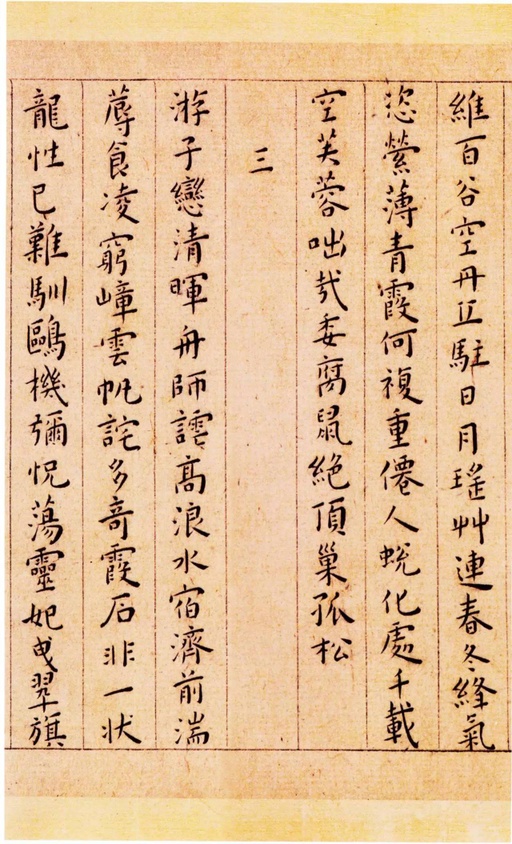 維百谷空丹丘駐日月瑤艸連春冬絳氣
恣縈薄青霞何複重僊人蛻化處千載
空芙蓉咄哉委腐鼠絶頂巢孤松
三
游子戀清暉舟師謣高浪水宿濟前湍
蓐食凌窮嶂雲帆詫多奇霞石非一狀
龍性已難馴鷗機彌怳蕩靈妃曳翠旗